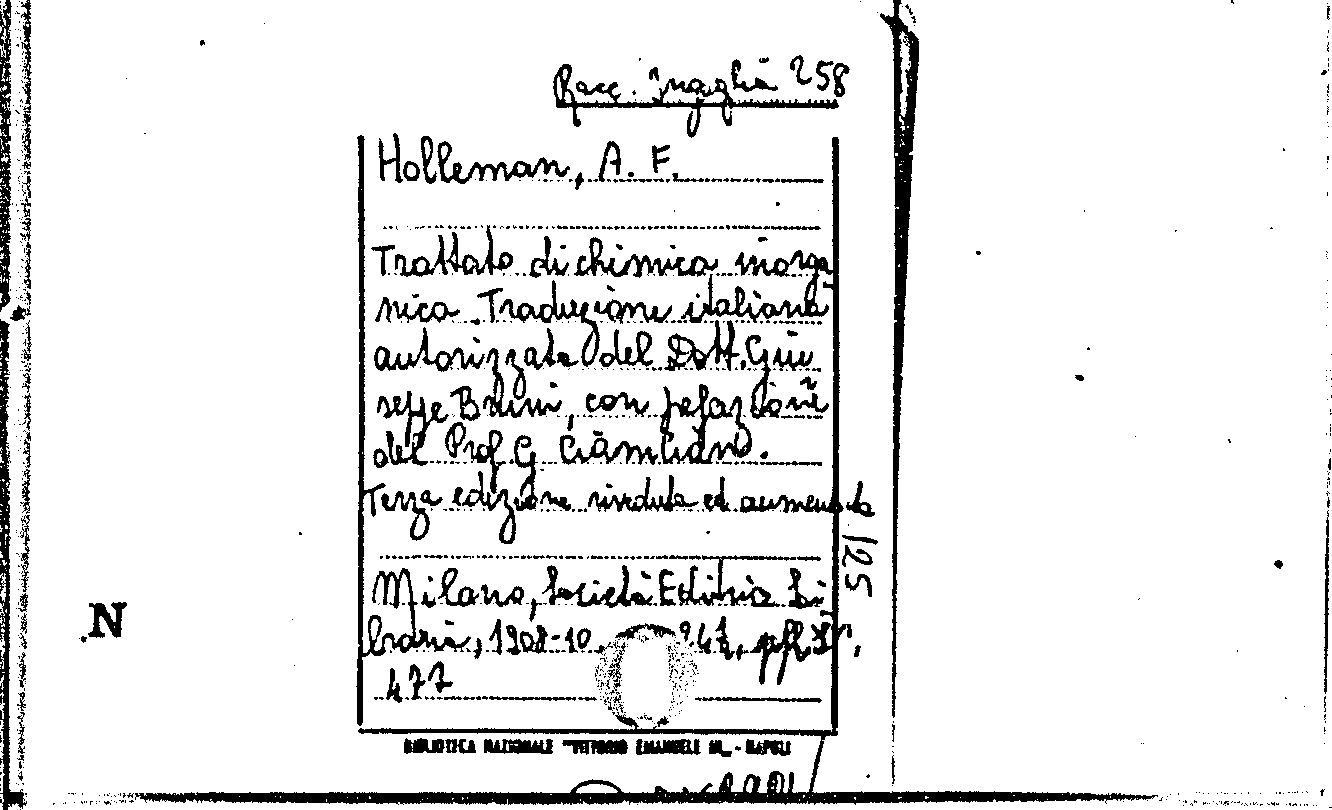 Racc. Ingaglia 258
Holleman, A. F.
Trattato di chimica inorga
nica. Traduzione italiana
autorizzata del Dott. Giu
seppe Bruni, con pefazione
del Prof. G. Ciamician.
Terza edizione riveduta ed aumentata
Milano, Società Editrice Li
braria, 1908-10. 24½,
477
125
N
BIBLIOTECA NAZIONALE "VITTORIO EMANUELE III„ - NAPOLI